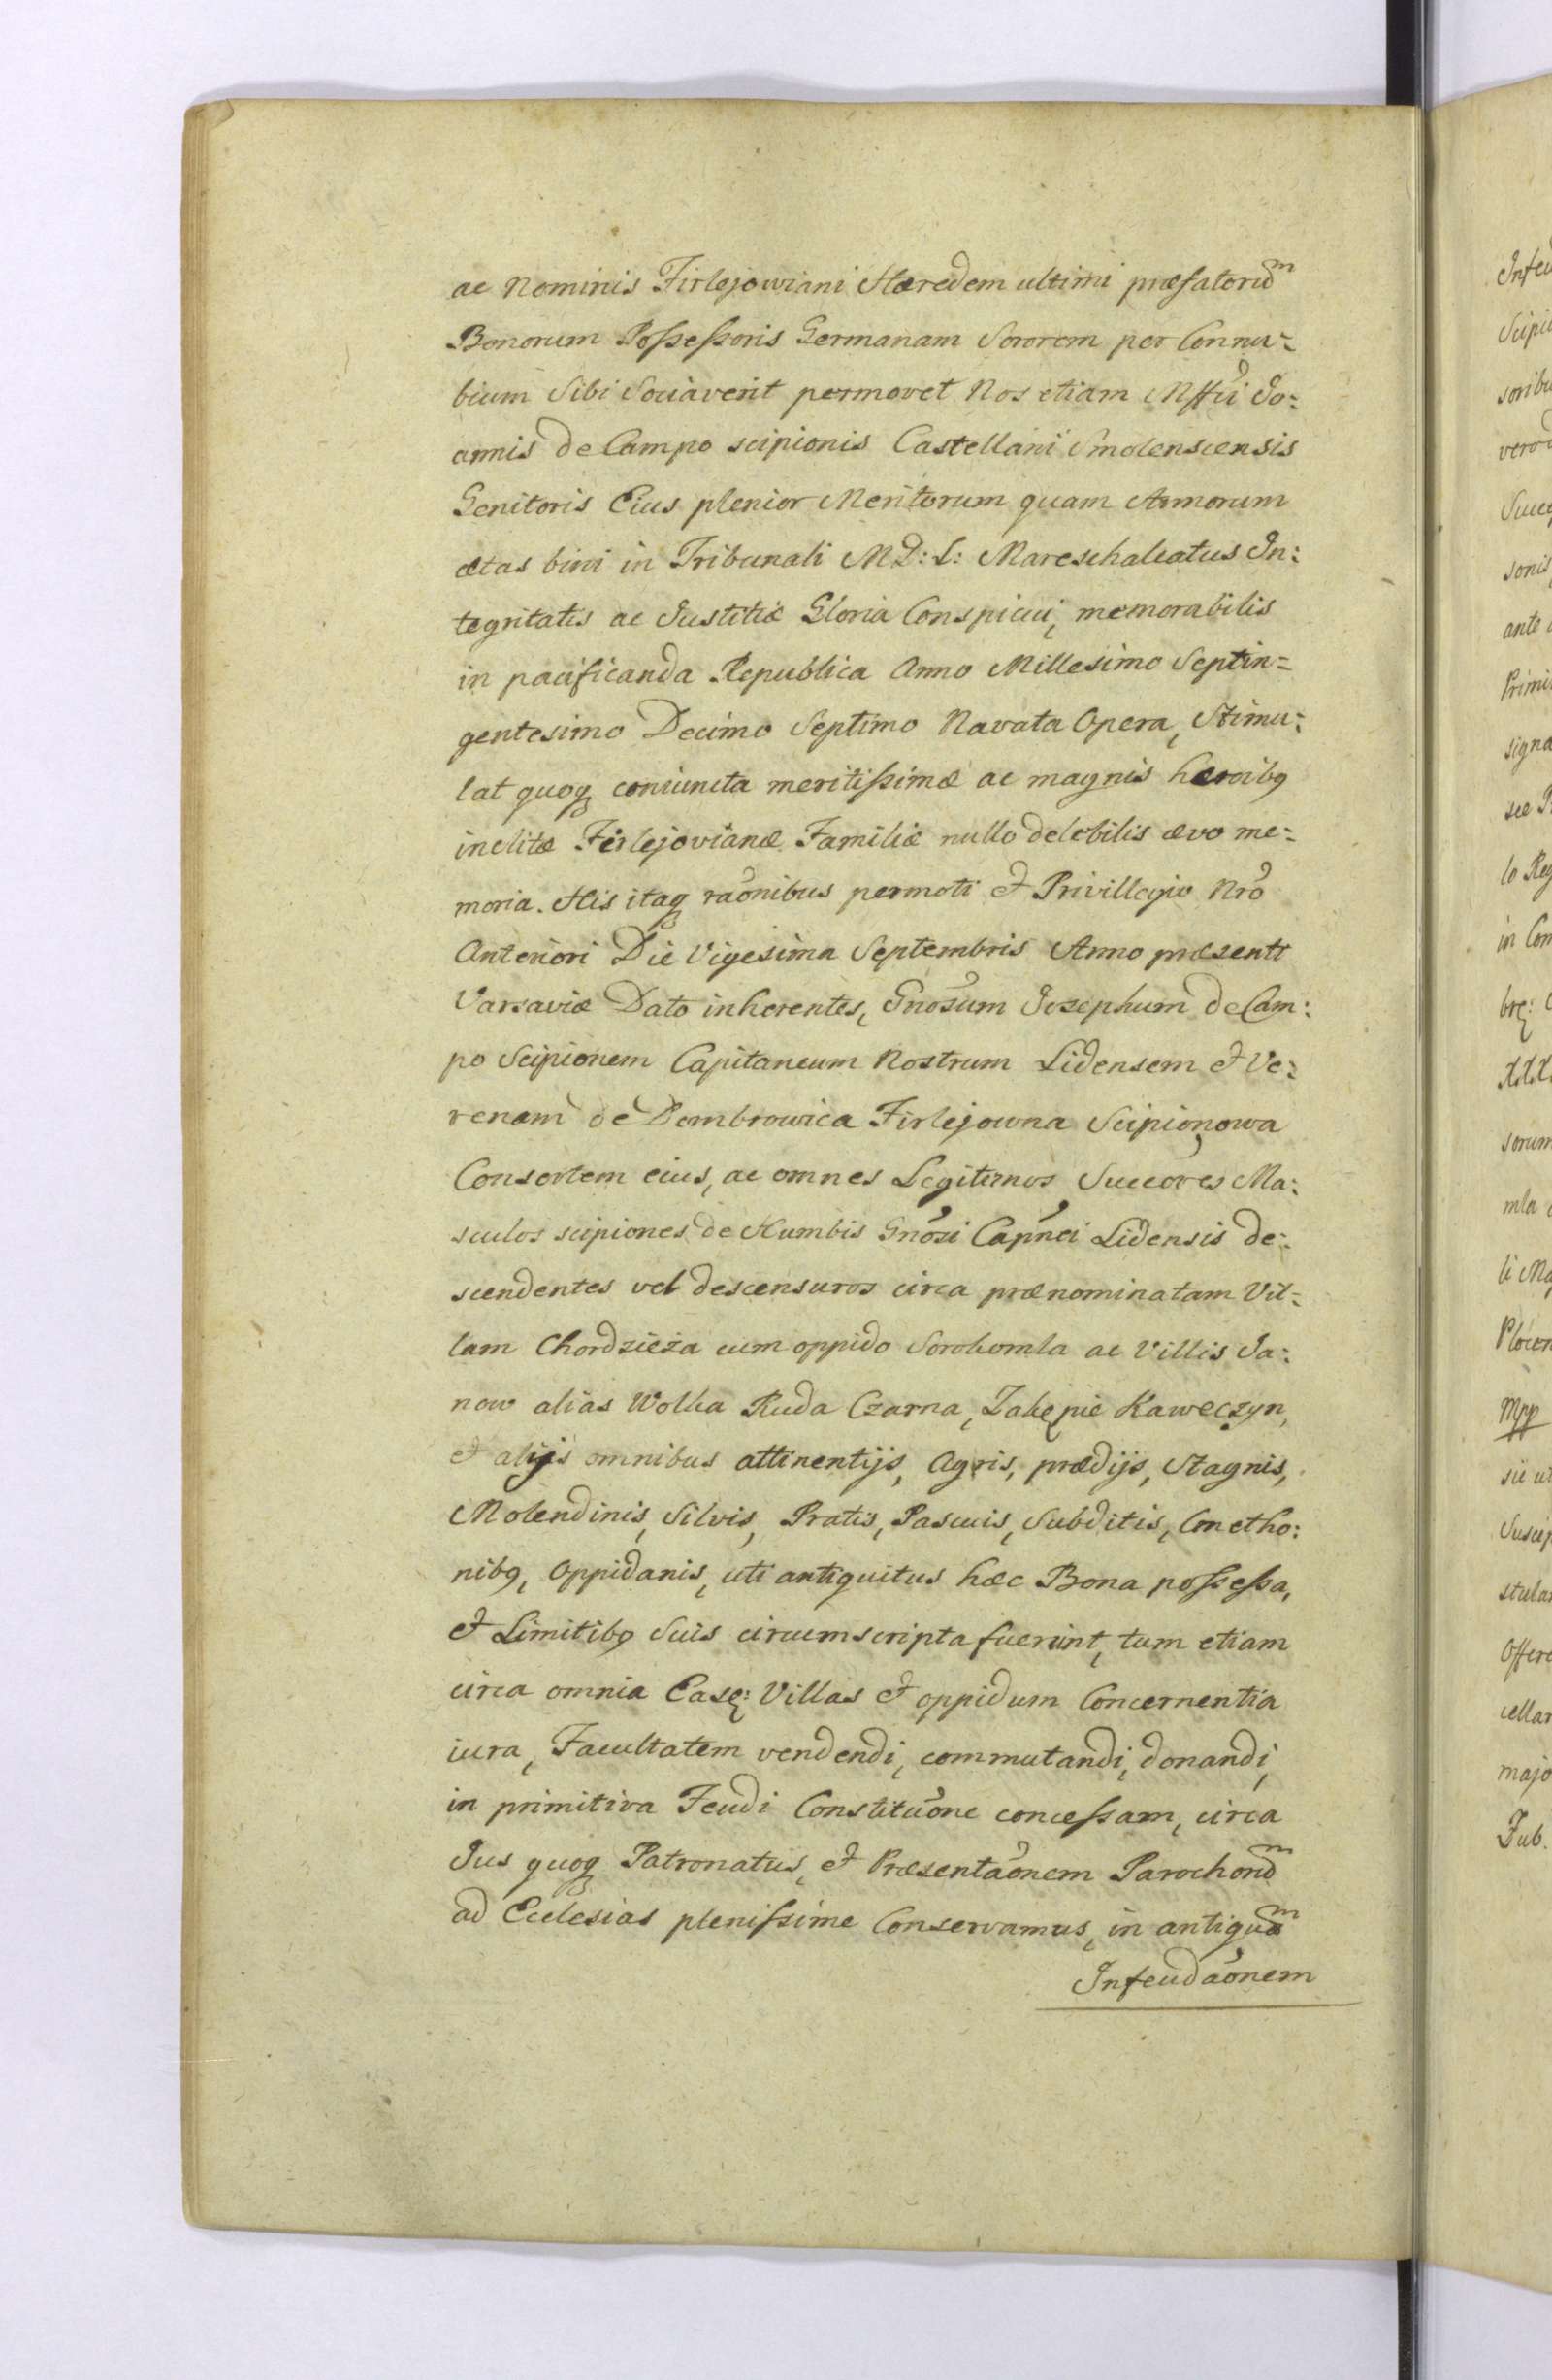 ac Nominis Firlejowiani Hæredem ultimi præfatorũm
Bonorum Possessoris Germanam Sororem per Connu=
bium Sibi Sociaverit permovet Nos etiam Mffci Jo:
annis de Campo scipionis Castellani Smolenscensis
Genitoris Eius plenior Meritorum quam Annorum
ætas bini in Tribunali M D: L: Mareschalcatus In:
tegritatis ac Justitiæ Gloria Conspicui, memorabilis
in pacificanda Republica Anno Millesimo Septin=
gentesimo Decimo Septimo Navata Opera, Stimu:
lat quoq coniuncta meritissimæ ac magnis heroibq
inclitæ Firlejovianæ Familiæ nullo delebilis ævo me=
moria. His itaq raõnibus permoti et Privillegio Nrõ
Anteriori Die Vigesima Septembris Anno præsenti
Varsaviæ Dato inherentes, Gnõsum Josephum de Cam:
po Scipionem Capitaneum Nostrum Lidensem et Ve:
renam de Dombrowica Firlejowna Scipionowa
Consortem eius, ac omnes Legitimos Succores Ma:
sculos scipiones de Humbis Gnõsi Capñei Lidensis de:
scendentes vel descensuros circa prænominatam Vil=
lam Chordzieża cum oppido Sorokomla ac Villis Ja:
now alias Wolka Ruda Czarna, Zakępie Kawęczyn,
et alijs omnibus attinentijs, Agris, prædijs, Stagnis,
Molendinis, Silvis, Pratis, Pascuis, Subditis, Cmetho:
nibq, Oppidanis, uti antiquitus hæc Bona possessa,
et Limitibq Suis circumscripta fuerint, tum etiam
circa omnia Easę: Villas et oppidum Concernentia
iura, Facultatem vendendi, commutandi, donandi,
in primitiva Feudi Constituõne concessam, circa
Jus quoq Patronatus, et Præsentaõnem Parochorũm
ad Ecclesias plenissime Conservamus, in antiquam
Infeudaõnem
Infeu
Scipio
soribu
vero
Succ
sonis
ante
Primi
signa
sæ P
lo Reg
in Con
brę:
sorum
mla
li Ma
Plocen
mpp
sic ut
Suscip
stula
Offere
cellar
majo
Fub.